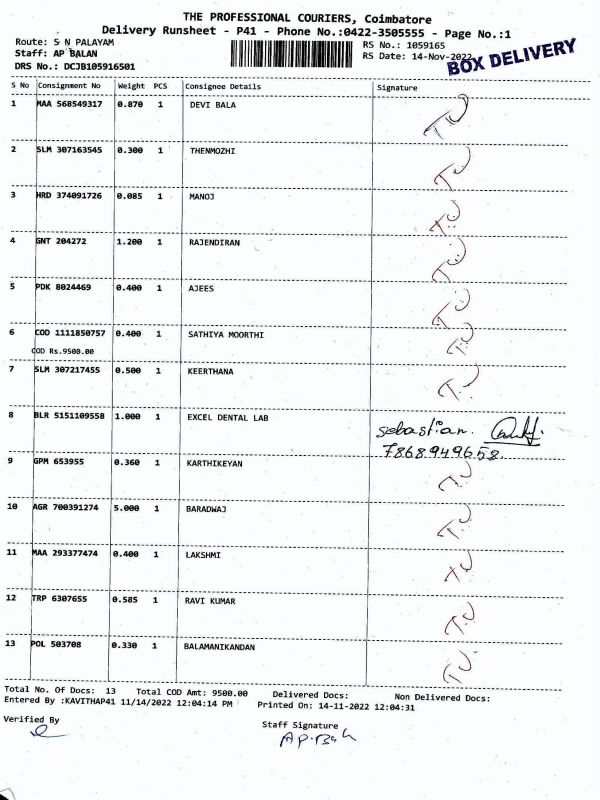 THE PROFESSIONAL COURIERS, Coimbatore
Delivery Runsheet - P41 - Phone No.:0422-3505555 - Page No.:1
Route: S N PALAYAM RS No.: 1059165
Staff: AP BALAN RS Date: 14-Nov-2022
DRS No.: DCJB105916501 BOX DELIVERY
S No Consignment No Weight PCS Consignee Details Signature
1 MAA 568549317 0.870 1 DEVI BALA
2 SLM 307163545 0.300 1 THENMOZHI
3 HRD 374091726 0.085 1 MANOJ
4 GNT 204272 1.200 1 RAJENDIRAN
5 PDK 8024469 0.400 1 AJEES
6 COD 1111850757 0.400 1 SATHIYA MOORTHI
COD Rs.9500.00
7 SLM 307217455 0.500 1 KEERTHANA
8 BLR 5151109558 1.000 1 EXCEL DENTAL LAB sebastian.
7868949658
9 GPM 653955 0.360 1 KARTHIKEYAN
10 AGR 700391274 5.000 1 BARADWAJ
11 MAA 293377474 0.400 1 LAKSHMI
12 TRP 6307655 0.585 1 RAVI KUMAR
13 POL 503708 0.330 1 BALAMANIKANDAN
Total No. Of Docs: 13 Total COD Amt: 9500.00 Delivered Docs: Non Delivered Docs:
Entered By :KAVITHAP41 11/14/2022 12:04:14 PM Printed On: 14-11-2022 12:04:31
Verified By Staff Signature